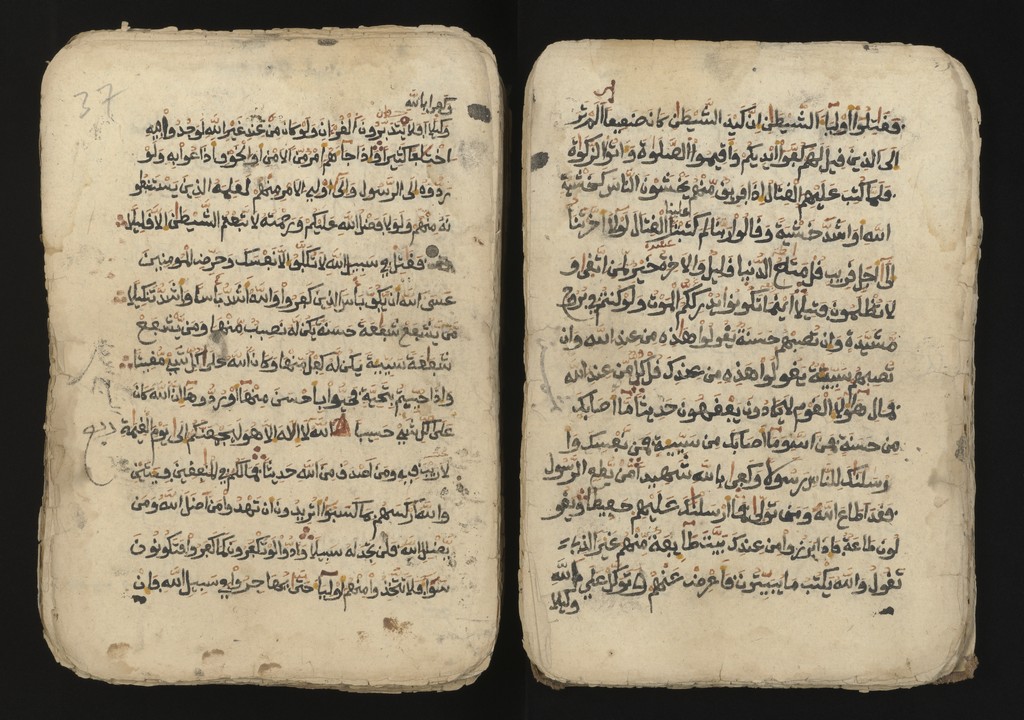 فقتلوا أولياء الشيطن ان كيد الشيطن كان ضعيفا الم تر
الى الذين قيل لهم كفوا ايديكم واقيموا الصلوة واتوا الزكوة
فلما كتب عليهم القتال اذا فريق منهم يخشون الناس كخشية
الله او اشد خشية وقالوا ربنا لم كتبت علينا القتال لولا اخرتنا
الى اجل قريب قل متاع الدنيا قليل والاخرة خير لمن اتقى و
لا تظلمون فتيلا اينما تكونوا يدرككم الموت ولو كنتم في بروج
مشيدة وان تصبهم حسنة يقولوا هذه من عند الله وان
تصبهم سيية يقولوا هذه من عندك قل كل من عند الله
فمال هولاء القوم لا يكادون يفقهون حديثا ما اصابك
من حسنة فمن الله وما اصابك من سيية فمن نفسك وا
رسلنك للناس رسولا وكفى بالله شهيدا من يطع الرسول
فقد اطاع الله ومن تولى فما ارسلنك عليهم حفيظا ويقو
لون طاعة فاذا برزوا من عندك بيت طايفة منهم غير الذي
تقول والله يكتب ما يبيتون فاعرض عنهم وتوكل على الله
وكيلا
37
وكفى بالله
وكيلا افلا يتدبرون القران ولو كان من عند غير الله لوجدوا فيه
اختلفا كثيرا واذا جاهم امر من الامن او الخوف اذاعوا به ولو
ردوه الى الرسول والى اولي الامر منهم لعلمه الذين يستنبطو
نه منهم ولولا فضل الله عليكم ورحمته لاتبعتم الشيطن الا قليلا
فقتل في سبيل الله لا تكلف الا نفسك وحرض المومنين
عسى الله ان يكف باس الذين كفروا والله اشد باسا واشد تنكيلا
من يشفع شفعة حسنة يكن له نصيب منها ومن يشفع
شفعة سيية يكن له كفل منها وكان الله على كل شيء مقيتا
واذا حييتم بتحية فحيوا باحسن منها او ردوها ان الله كان
على كل شيء حسيبا الله لا اله الا هو ليجمعنكم الى يوم القيمة
لا ريب فيه ومن اصدق من الله حديثا فما لكم في المنفقين فيتين
والله اركسهم بما كسبوا اتريدون ان تهدوا من اضل الله ومن
يضلل الله فلن تجد له سبيلا ودوا لو تكفرون كما كفروا فتكونون
سواء فلا تتخذوا منهم اولياء حتى يهاجروا في سبيل الله فان